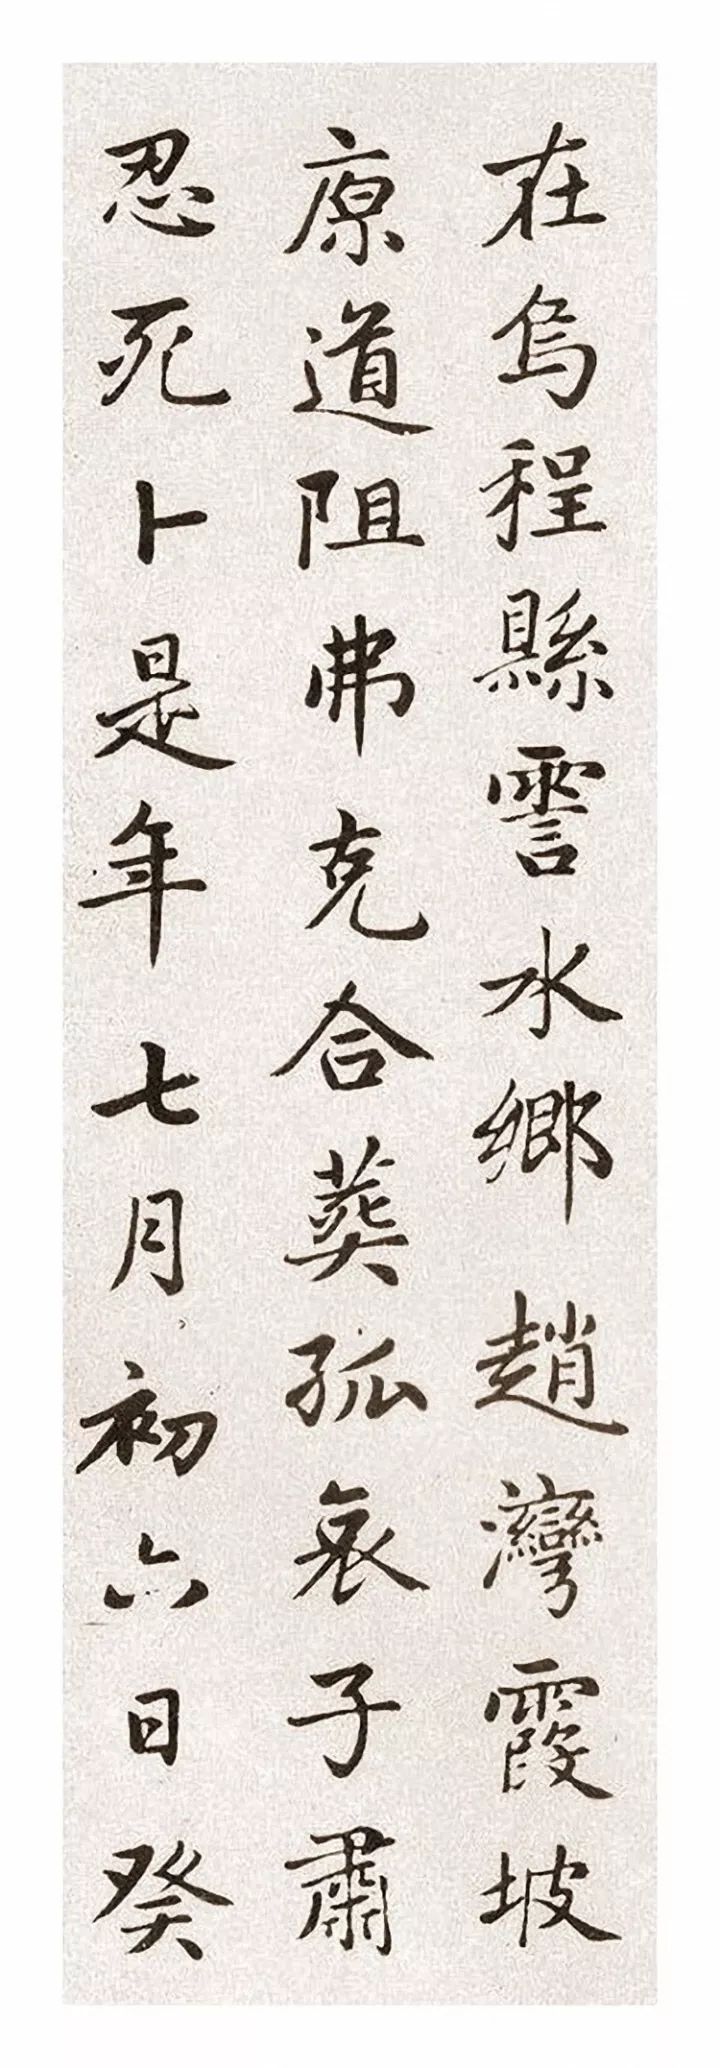 在烏程縣霅水鄉趙灣霞坡
原道阻弗克合葬孤哀子肅
忍死卜是年七月初六日癸